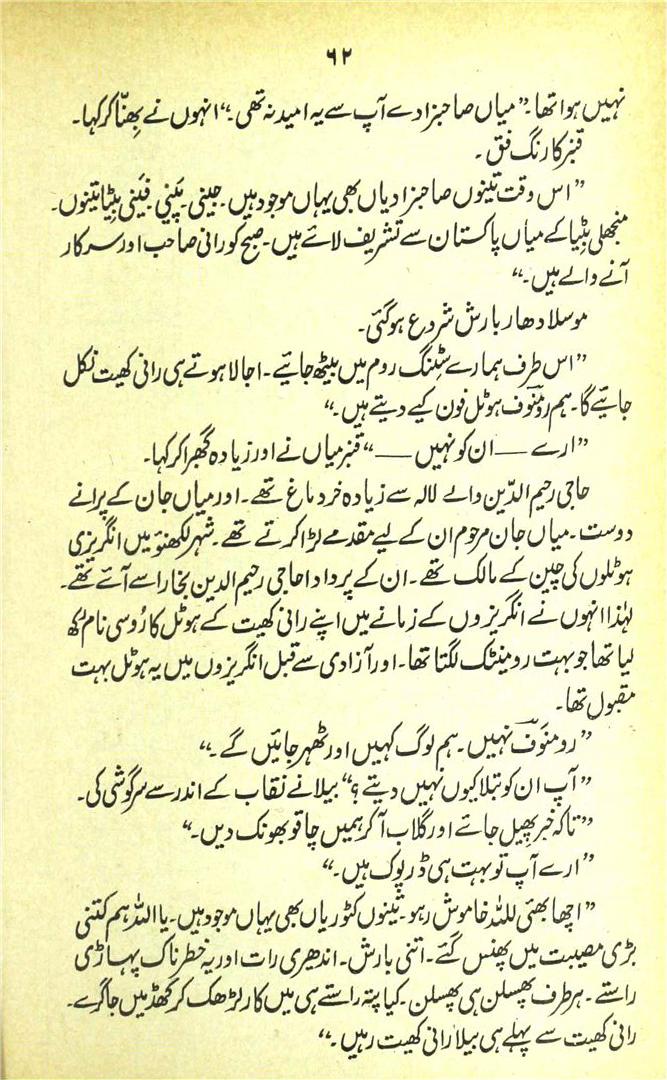 ۶۲
نہیں ہوا تھا۔ ”میاں صاحبزادے آپ سے یہ امید نہ تھی۔“ انہوں نے بھنّا کر کہا۔
قنبر کا رنگ فق۔
”اس وقت تینوں صاحبزادیاں بھی یہاں موجود ہیں۔ جینی۔ پَینی۔ فینی بٹیا تینوں۔
منجھلی بٹیا کے میاں پاکستان سے تشریف لائے ہیں۔ صبح کو رانی صاحب اور سرکار
آنے والے ہیں۔“
موسلا دھار بارش شروع ہو گئی۔
”اس طرف ہمارے سٹنگ روم میں بیٹھ جائیے۔ اجالا ہوتے ہی رانی کھیت نکل
جائیے گا۔ ہم رومنوف ہوٹل فون کیے دیتے ہیں۔“
”ارے —— ان کو نہیں ——“ قنبر میاں نے اور زیادہ گھبرا کر کہا۔
حاجی رحیم الدّین والے لالہ سے زیادہ خردماغ تھے۔ اور میاں جان کے پرانے
دوست۔ میاں جان مرحوم ان کے لیے مقدمے لڑا کرتے تھے۔ شہر لکھنؤ میں انگریزی
ہوٹلوں کی چین کے مالک تھے۔ ان کے پردادا حاجی رحیم الدین بخارا سے آئے تھے۔
لہٰذا انہوں نے انگریزوں کے زمانے میں اپنے رانی کھیت کے ہوٹل کا رُوسی نام رکھ
لیا تھا جو بہت رومینٹک لگتا تھا۔ اور آزادی سے قبل انگریزوں میں یہ ہوٹل بہت
مقبول تھا۔
”رومنوف نہیں۔ ہم لوگ کہیں اور ٹھہر جائیں گے۔“
”آپ ان کو بتلا کیوں نہیں دیتے؟“ بیلا نے نقاب کے اندر سے سرگوشی کی۔
”تاکہ خبر پھیل جائے اور گلاب آ کر ہمیں چاقو بھونک دیں۔“
”ارے آپ تو بہت ہی ڈرپوک ہیں۔“
”اچھا بھئی للّٰہ خاموش رہو۔ تینوں کٹوریاں بھی یہاں موجود ہیں۔ یا اللہ ہم کتنی
بڑی مصیبت میں پھنس گئے۔ اتنی بارش۔ اندھیری رات اور یہ خطرناک پہاڑی
راستے۔ ہر طرف پھسلن ہی پھسلن۔ کیا پتہ راستے ہی میں کار لڑھک کر کھڈ میں جا گرے۔
رانی کھیت سے پہلے ہی بیلا رانی کھیت رہیں۔“